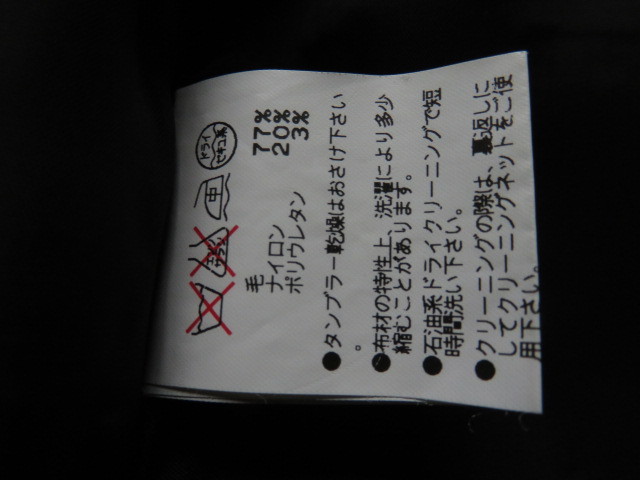 エンソサラシ
中
ドライ
セキユ系
毛 77%
ナイロン 20%
ポリウレタン 3%
●タンブラー乾燥はおさけ下さい
。
●布材の特性上、洗濯により多少
縮むことがあります。
●石油系ドライクリーニングで短
時間洗い下さい。
●クリーニングの際は、裏返しに
してクリーニングネットをご使
用下さい。